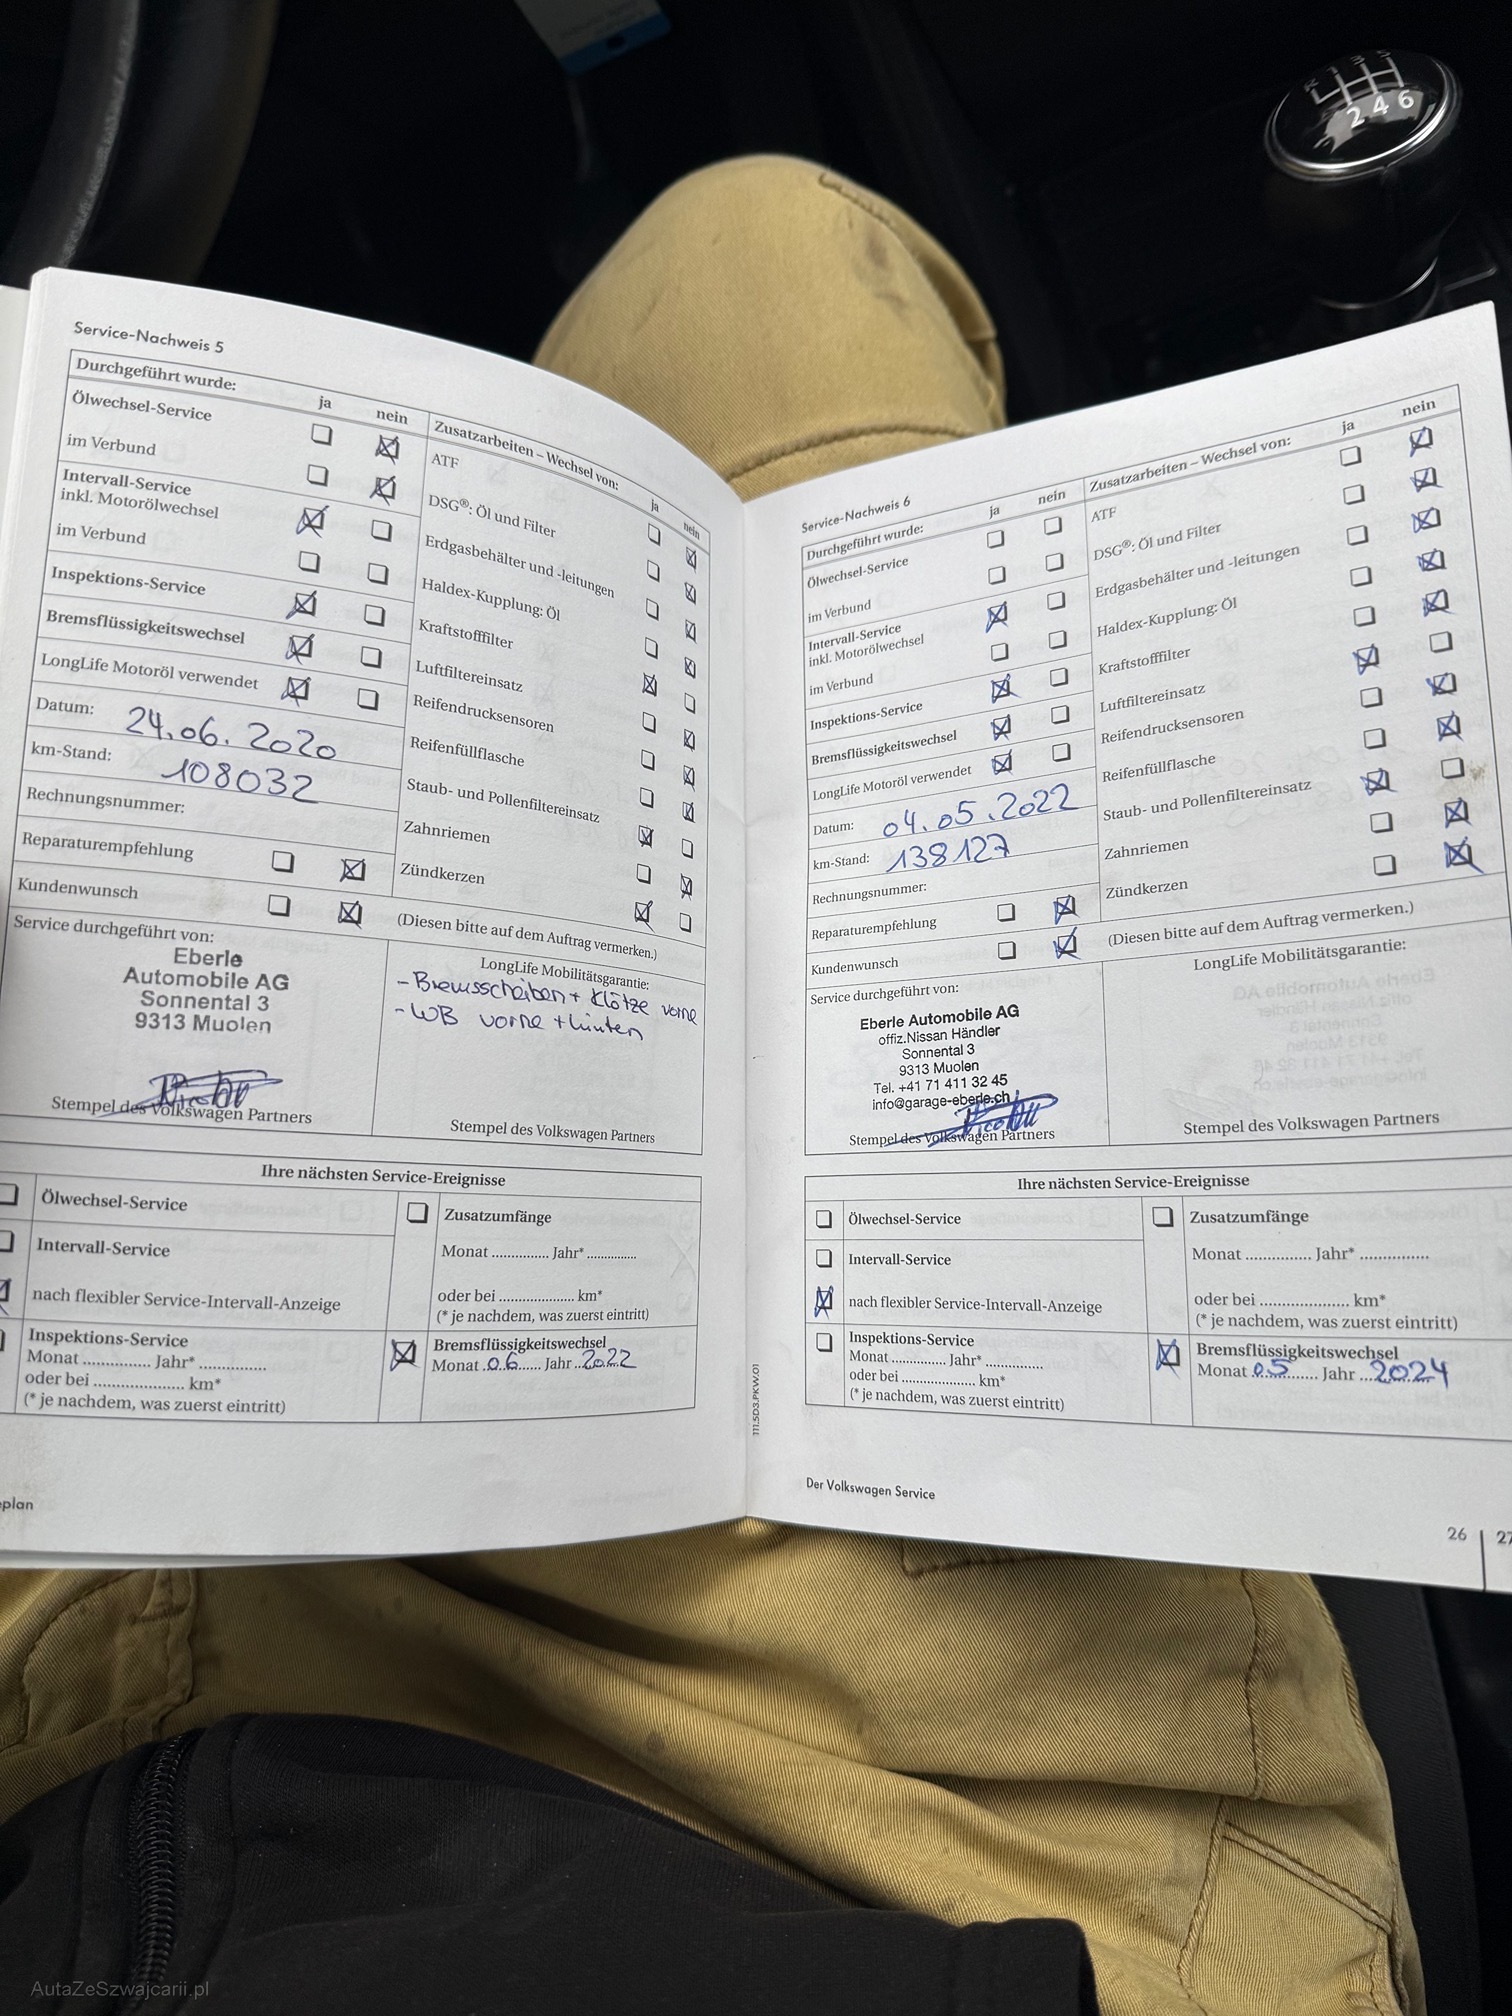 2 4 6
Service-Nachweis 5
Durchgeführt wurde:
ja nein
Ölwechsel-Service
im Verbund
Intervall-Service
inkl. Motorölwechsel
im Verbund
Inspektions-Service
Bremsflüssigkeitswechsel
LongLife Motoröl verwendet
Datum: 24.06.2020
km-Stand: 108032
Rechnungsnummer:
Reparaturempfehlung
Kundenwunsch
Zusatzarbeiten – Wechsel von:
ja nein
ATF
DSG®: Öl und Filter
Erdgasbehälter und -leitungen
Haldex-Kupplung: Öl
Kraftstofffilter
Luftfiltereinsatz
Reifendrucksensoren
Reifenfüllflasche
Staub- und Pollenfiltereinsatz
Zahnriemen
Zündkerzen
(Diesen bitte auf dem Auftrag vermerken.)
Service durchgeführt von:
Eberle
Automobile AG
Sonnental 3
9313 Muolen
Stempel des Volkswagen Partners
LongLife Mobilitätsgarantie:
- Bremsscheiben + Klötze vorne
- WB vorne + hinten
Stempel des Volkswagen Partners
Ihre nächsten Service-Ereignisse
Ölwechsel-Service
Intervall-Service
nach flexibler Service-Intervall-Anzeige
Inspektions-Service
Monat .............. Jahr* ..............
oder bei ................... km*
(* je nachdem, was zuerst eintritt)
Zusatzumfänge
Monat .............. Jahr* .............
oder bei .................... km*
(* je nachdem, was zuerst eintritt)
Bremsflüssigkeitswechsel
Monat 06 Jahr 2022
plan
111.5D3.PKW.01
Service-Nachweis 6
Durchgeführt wurde:
ja nein
Ölwechsel-Service
im Verbund
Intervall-Service
inkl. Motorölwechsel
im Verbund
Inspektions-Service
Bremsflüssigkeitswechsel
LongLife Motoröl verwendet
Datum: 04.05.2022
km-Stand: 138127
Rechnungsnummer:
Reparaturempfehlung
Kundenwunsch
Zusatzarbeiten – Wechsel von:
ja nein
ATF
DSG®: Öl und Filter
Erdgasbehälter und -leitungen
Haldex-Kupplung: Öl
Kraftstofffilter
Luftfiltereinsatz
Reifendrucksensoren
Reifenfüllflasche
Staub- und Pollenfiltereinsatz
Zahnriemen
Zündkerzen
(Diesen bitte auf dem Auftrag vermerken.)
Service durchgeführt von:
Eberle Automobile AG
offiz.Nissan Händler
Sonnental 3
9313 Muolen
Tel. +41 71 411 32 45
info@garage-eberle.ch
Stempel des Volkswagen Partners
LongLife Mobilitätsgarantie:
Stempel des Volkswagen Partners
Ihre nächsten Service-Ereignisse
Ölwechsel-Service
Intervall-Service
nach flexibler Service-Intervall-Anzeige
Inspektions-Service
Monat .............. Jahr* ..............
oder bei ................... km*
(* je nachdem, was zuerst eintritt)
Zusatzumfänge
Monat .............. Jahr* ..............
oder bei .................... km*
(* je nachdem, was zuerst eintritt)
Bremsflüssigkeitswechsel
Monat 05 Jahr 2024
Der Volkswagen Service
26 | 27
AutaZeSzwajcarii.pl